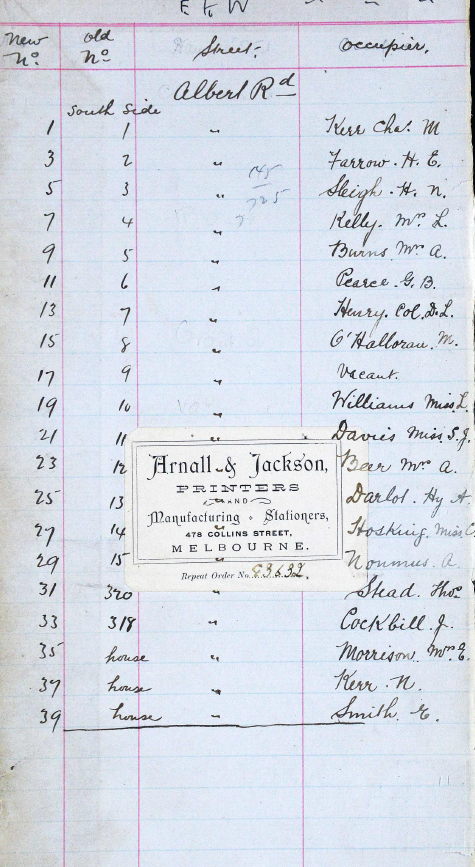 E & W
New No. Old No. Street. Occupier.
Albert Rd
South Side
1 1 " Kerr Chas. M
3 2 " Farrow. H. E.
5 3 " Sleigh. H. N.
7 4 " Kelly. Mrs L.
9 5 " Burns Mrs A.
11 6 " Pearce. G. B.
13 7 " Henry. Col. D. L.
15 8 " O'Halloran. M.
17 9 " Vacant.
19 10 " Williams Miss L.
21 11 " Davies Miss S. J.
23 12 Beer Mrs A.
25 13 " Darlot. Hy A.
27 14 " Hosking. Miss C
29 15 " Nonmus. A.
31 320 " Stead. Thos.
33 318 " Cockbill. J.
35 house " Morrison. Mrs E.
37 house " Kerr. N.
39 house " Smith. E.
145
725
Arnall & Jackson,
PRINTERS
AND
Manufacturing Stationers,
478 COLLINS STREET,
MELBOURNE.
Repeat Order No. 83632.